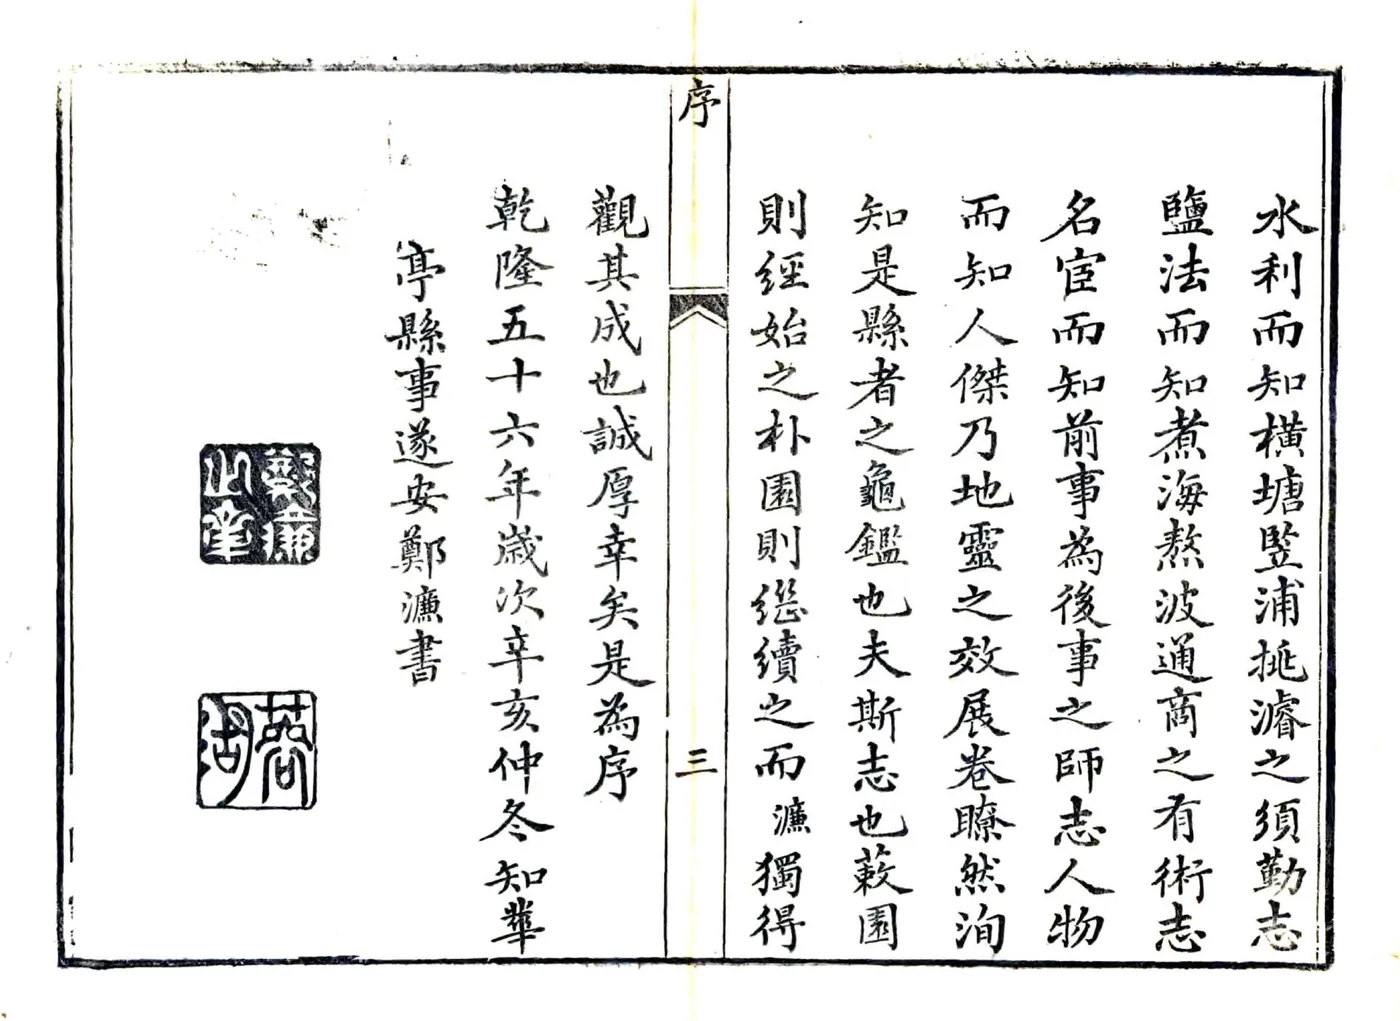 水利而知橫塘竪浦挑濬之須勤志
鹽法而知煮海熬波通商之有術志
名宦而知前事為後事之師志人物
而知人傑乃地靈之效展卷瞭然洵
知是縣者之龜鑑也夫斯志也蔌園
則經始之朴園則繼續之而濂獨得
序
三
觀其成也誠厚幸矣是為序
乾隆五十六年歲次辛亥仲冬知華
亭縣事遂安鄭濂書
鄭濂之章
蓉湖